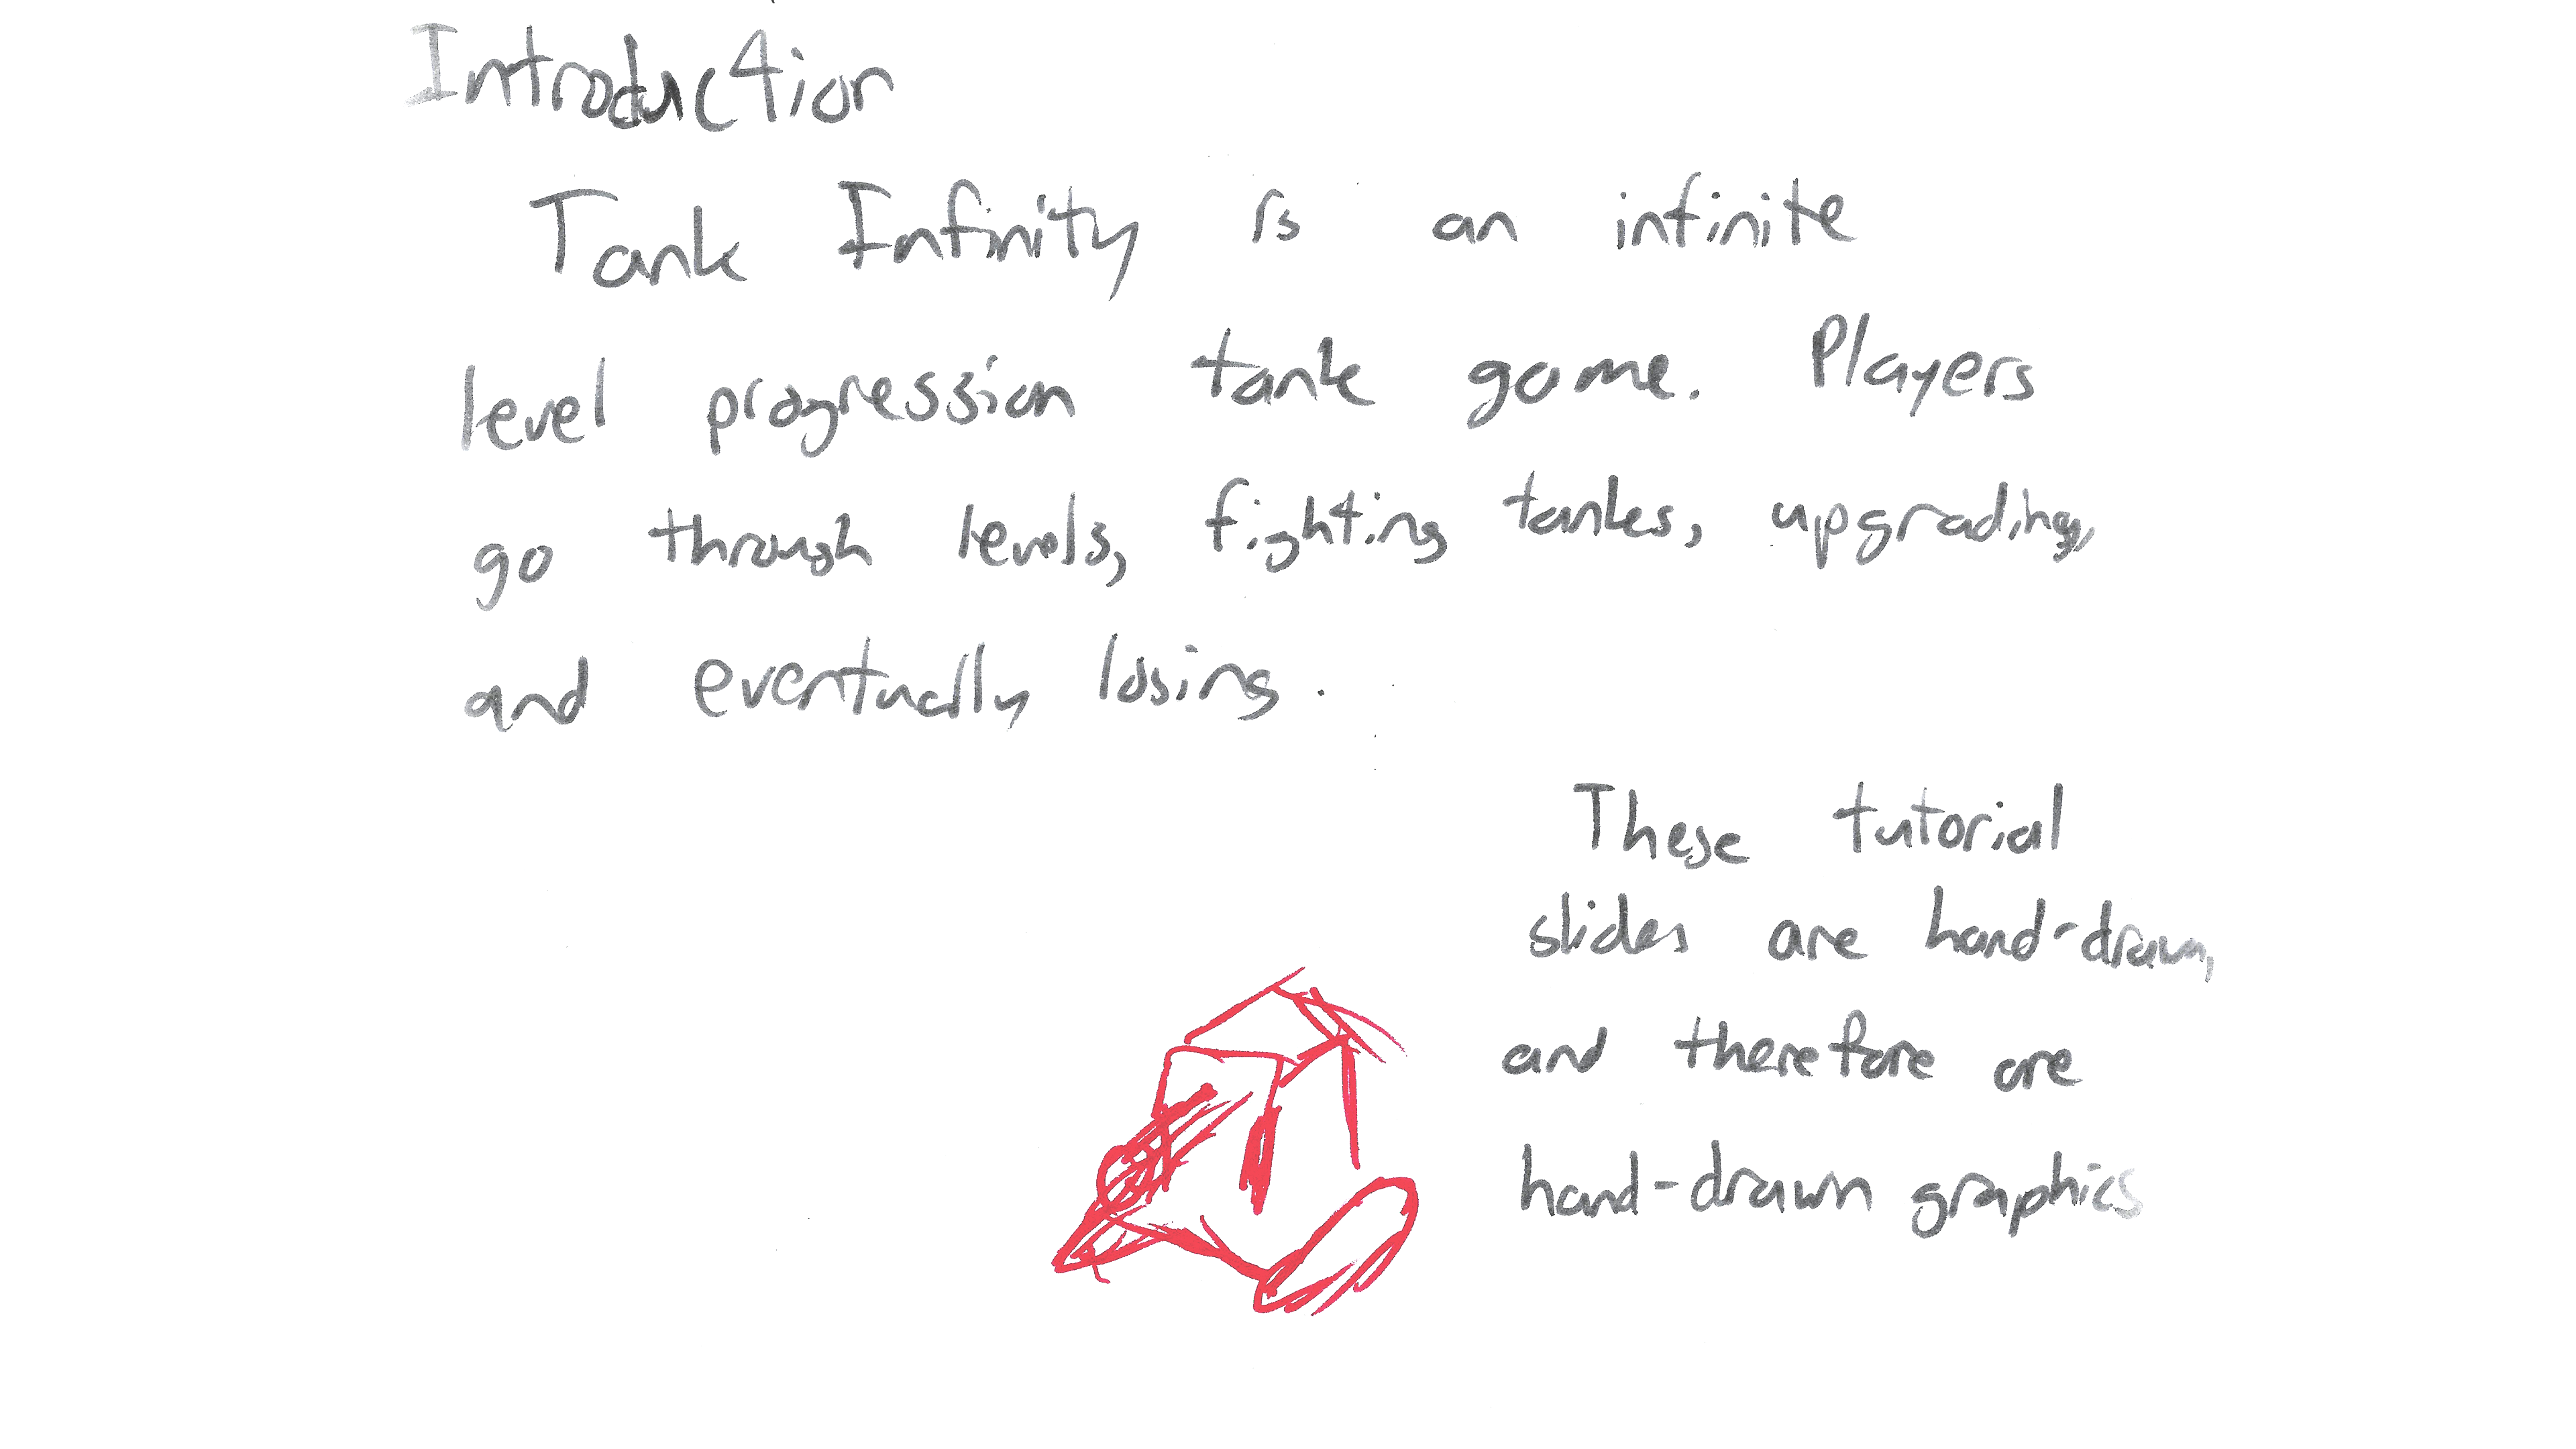 Introduction
Tank Infinity is an infinite
level progression tank game. Players
go through levels, fighting tanks, upgrading,
and eventually losing.
These tutorial
slides are hand-drawn,
and therefore are
hand-drawn graphics